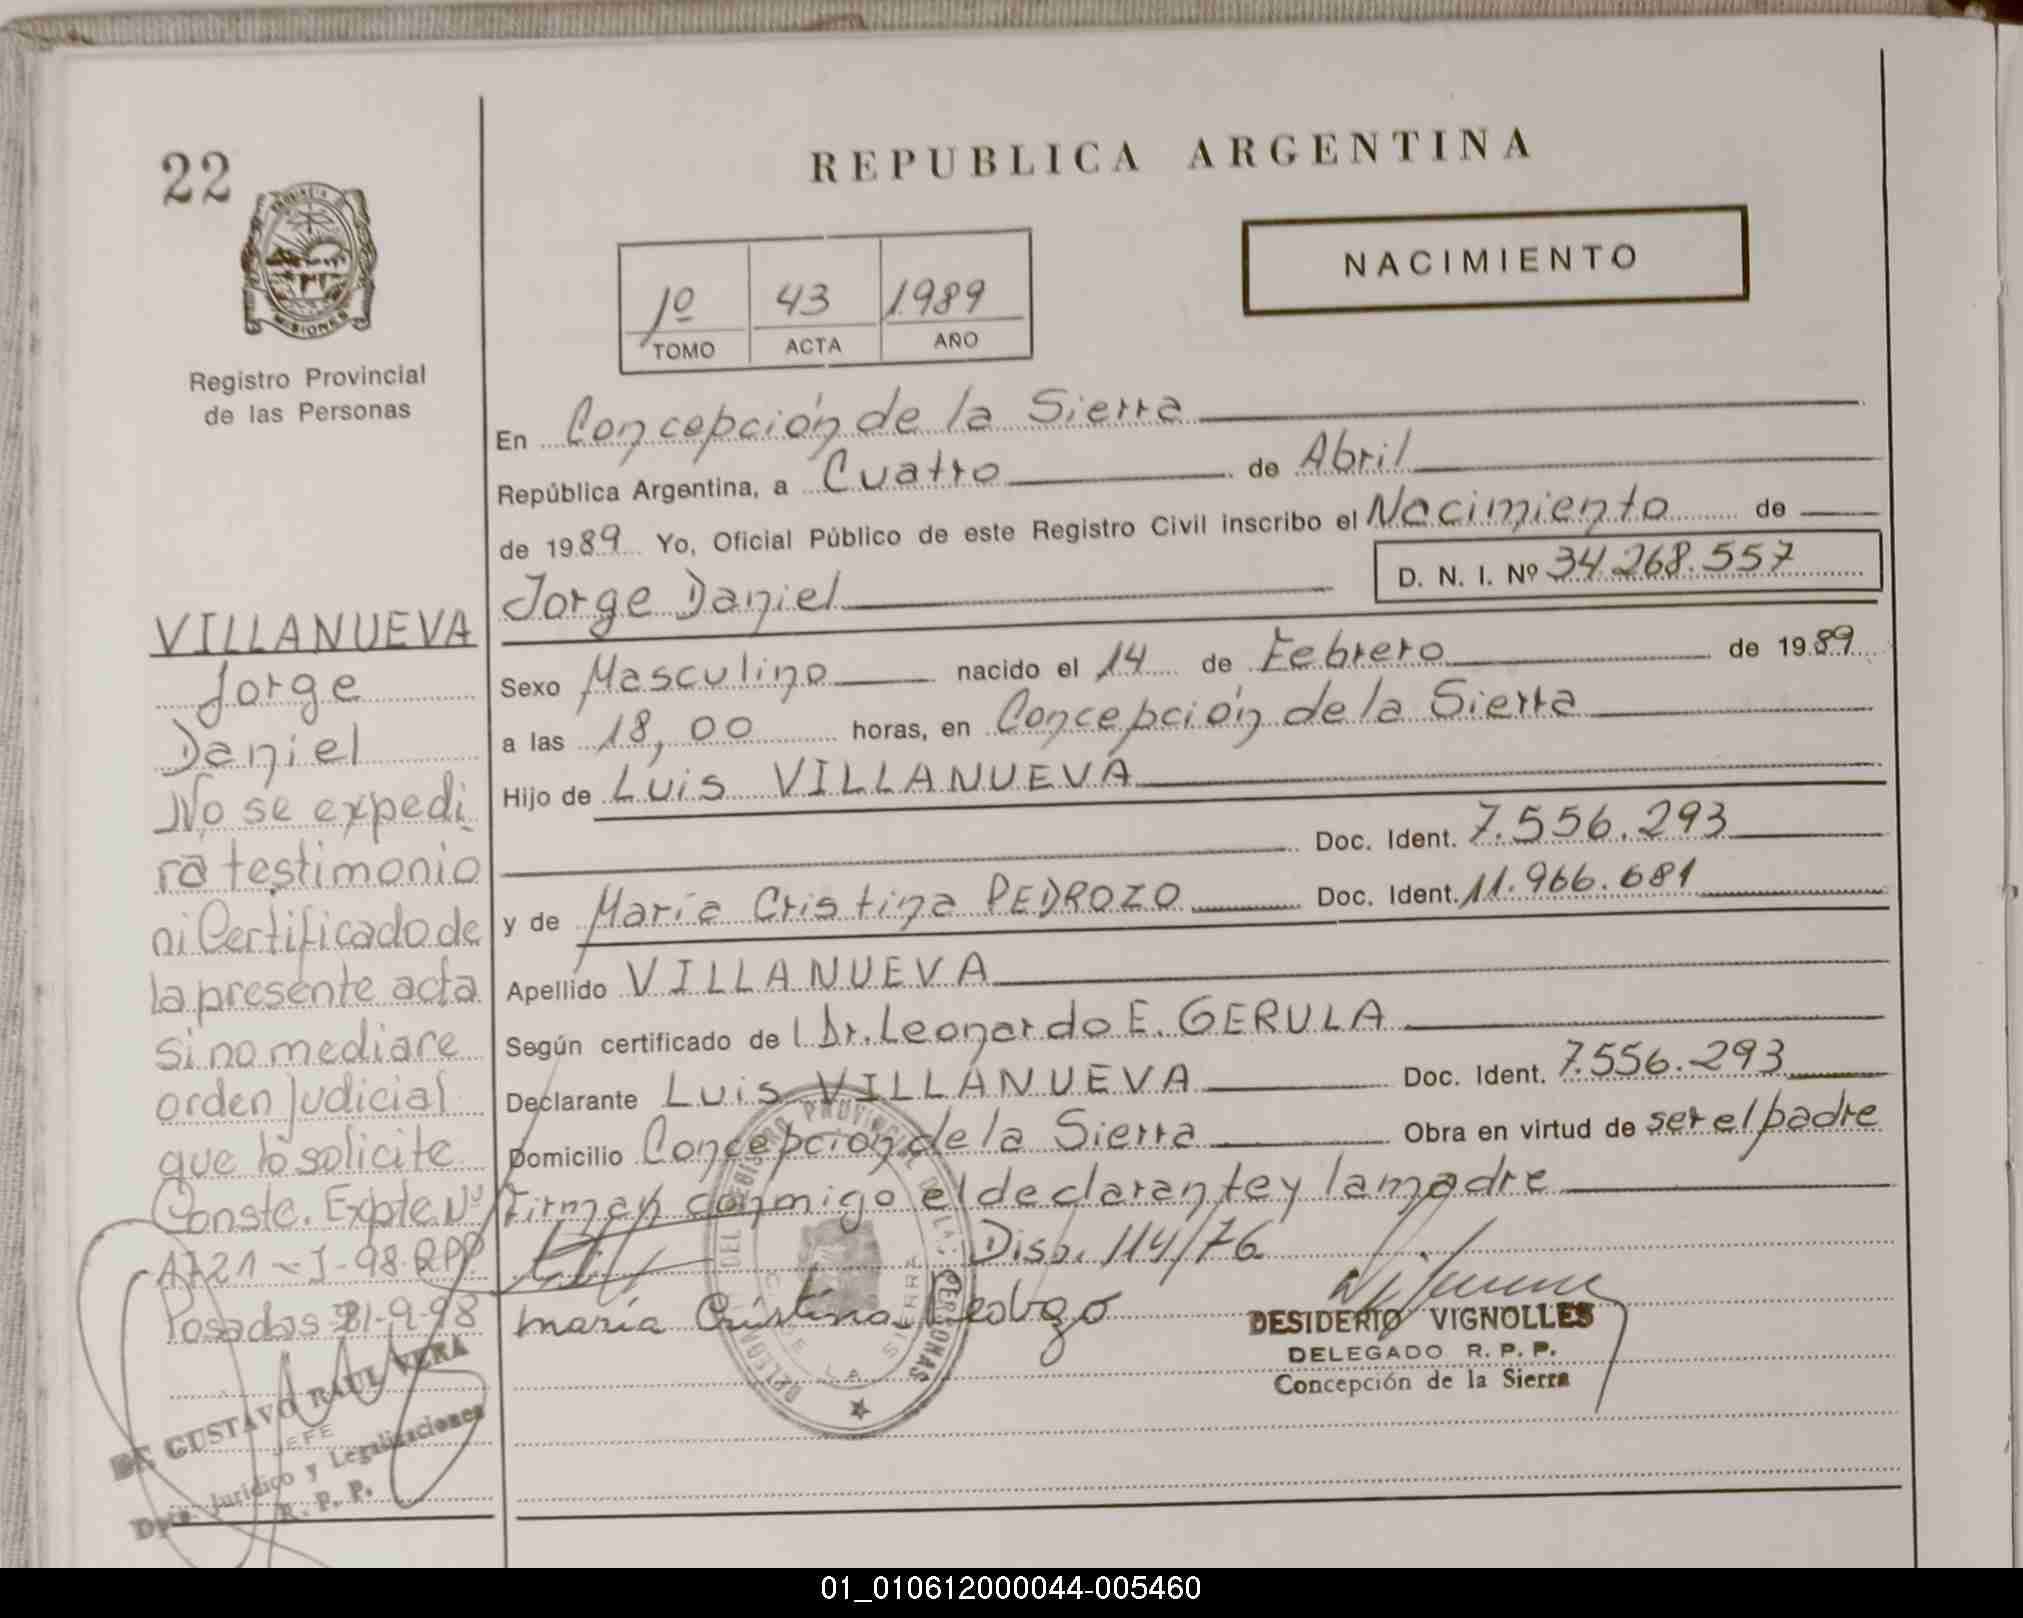 22
PROVINCIA DE
MISIONES
Registro Provincial
de las Personas
REPUBLICA ARGENTINA
NACIMIENTO
1º 43 1989
TOMO ACTA AÑO
En Concepción de la Sierra
República Argentina, a Cuatro de Abril
de 1989 Yo, Oficial Público de este Registro Civil inscribo el Nacimiento de
Jorge Daniel D. N. I. Nº 34.268.557
Sexo Masculino nacido el 14 de Febrero de 1989
a las 18,00 horas, en Concepción de la Sierra
Hijo de Luis VILLANUEVA
Doc. Ident. 7.556.293
y de María Cristina PEDROZO Doc. Ident. 11.966.681
Apellido VILLANUEVA
Según certificado de l Dr. Leonardo E. GERULA
Declarante Luis VILLANUEVA Doc. Ident. 7.556.293
Domicilio Concepción de la Sierra Obra en virtud de ser el padre
Firman conmigo el declarante y la madre
Disp. 114/76
maría Cristina
DESIDERIO VIGNOLLES
DELEGADO R. P. P.
Concepción de la Sierra
VILLANUEVA
Jorge
Daniel
No se expedi
rá testimonio
ni Certificado de
la presente acta
si no mediare
orden judicial
que lo solicite
Conste. Expte. Nº
1721-J-98-RPP
Posadas 21-9-98
GUSTAVO RAUL VERA
JEFE
Dpto. Jurídico y Legalizaciones
R. P. P.
REGISTRO PROVINCIAL DE LAS PERSONAS
DE LA SIERRA
01_010612000044-005460